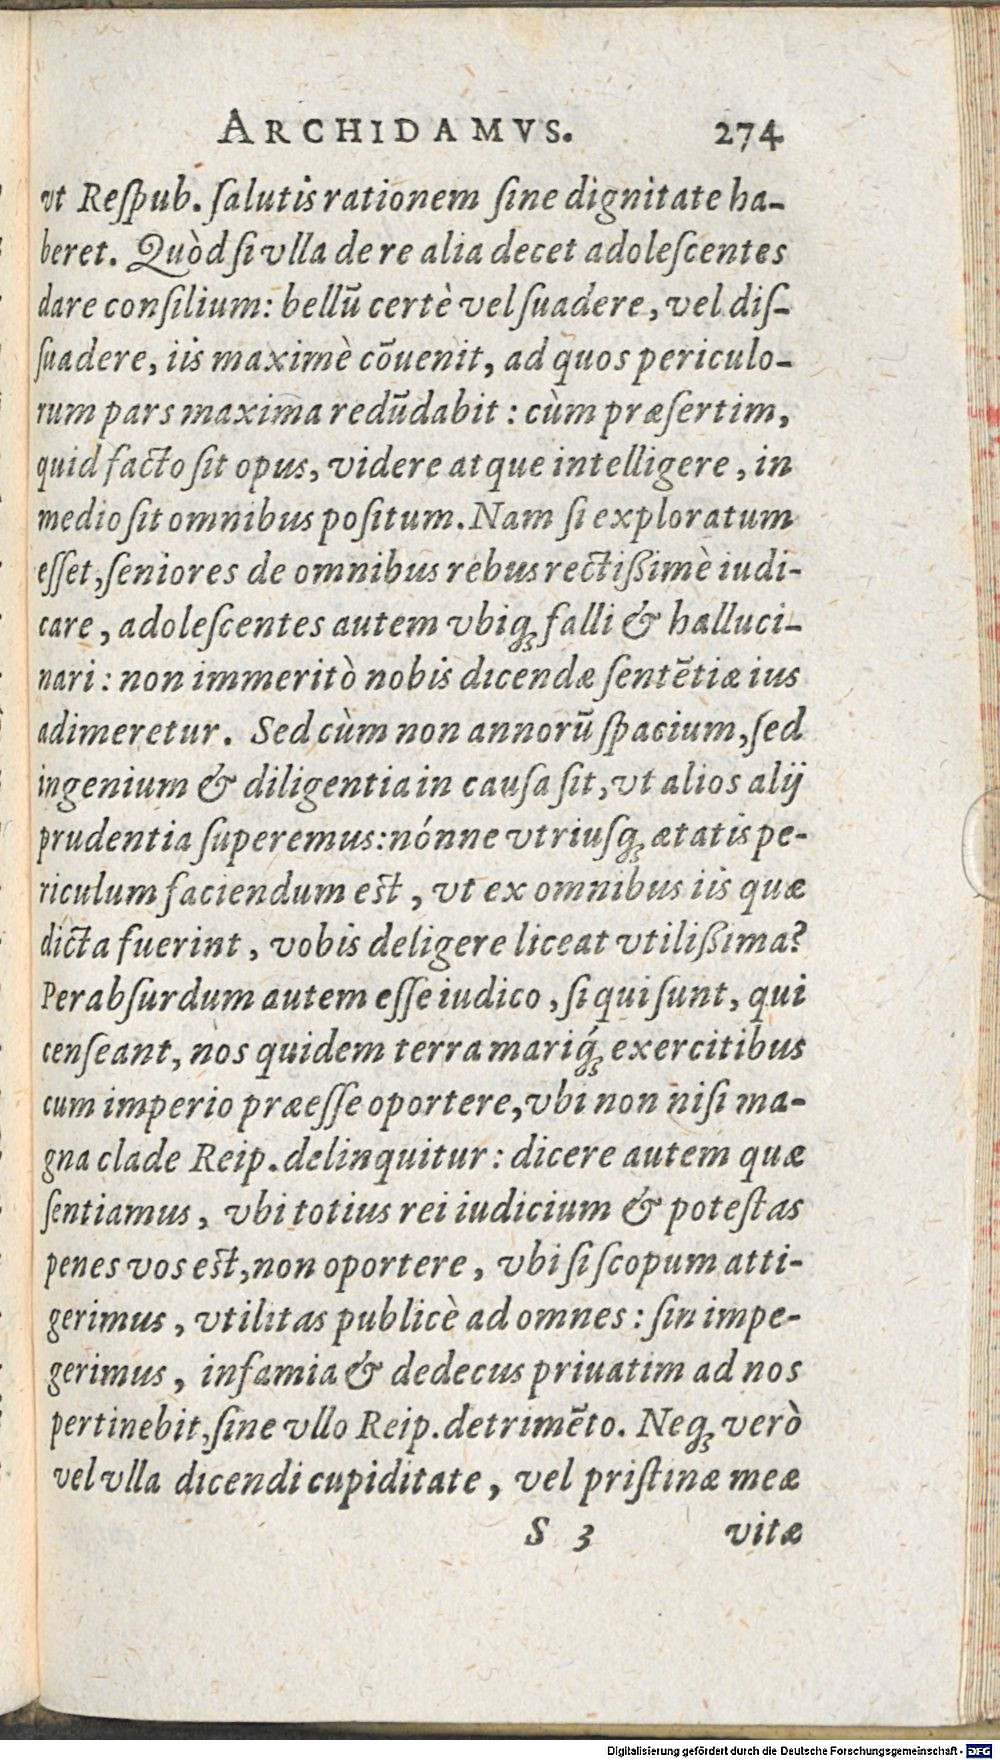 ARCHIDAMVS. 274
vt Reſpub. ſalutis rationem ſine dignitate ha-
beret. Quòd ſi vlla de re alia decet adoleſcentes
dare conſilium: bellū certè vel ſuadere, vel diſ-
ſuadere, iis maximè cōuenit, ad quos periculo-
rum pars maxima redūdabit: cùm præſertim,
quid facto ſit opus, videre atque intelligere, in
medio ſit omnibus poſitum. Nam ſi exploratum
eſſet, ſeniores de omnibus rebus rectißimè iudi-
care, adoleſcentes autem vbiq; falli & halluci-
nari: non immeritò nobis dicendæ ſentētiæ ius
adimeretur. Sed cùm non annorū ſpacium, ſed
ingenium & diligentia in cauſa ſit, vt alios alij
prudentia ſuperemus: nónne vtriuſq; ætatis pe-
riculum faciendum eſt, vt ex omnibus iis quæ
dicta fuerint, vobis deligere liceat vtilißima?
Perabſurdum autem eſſe iudico, ſi qui ſunt, qui
cenſeant, nos quidem terra mariq́; exercitibus
cum imperio præeſſe oportere, vbi non niſi ma-
gna clade Reip. delinquitur: dicere autem quæ
ſentiamus, vbi totius rei iudicium & poteſtas
penes vos eſt, non oportere, vbi ſi ſcopum atti-
gerimus, vtilitas publicè ad omnes: ſin impe-
gerimus, infamia & dedecus priuatim ad nos
pertinebit, ſine vllo Reip. detrimēto. Neq; verò
vel vlla dicendi cupiditate, vel priſtinæ meæ
S 3 vitæ
Digitalisierung gefördert durch die Deutsche Forschungsgemeinschaft - DFG